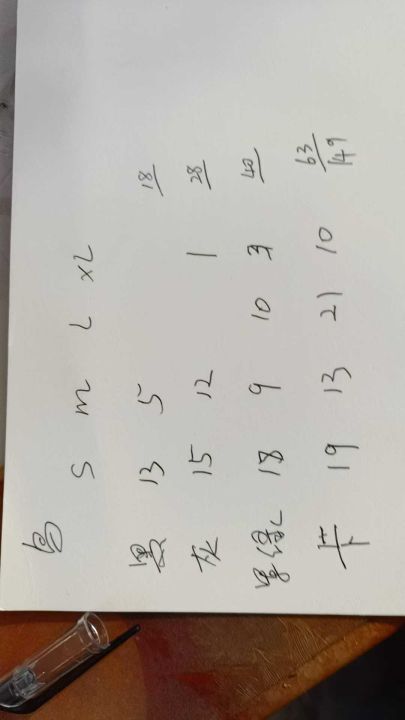 色 S M L XL
黑 13 5 18
灰 15 12 1 28
墨绿 18 9 10 3 40
卡 19 13 21 10 63
149